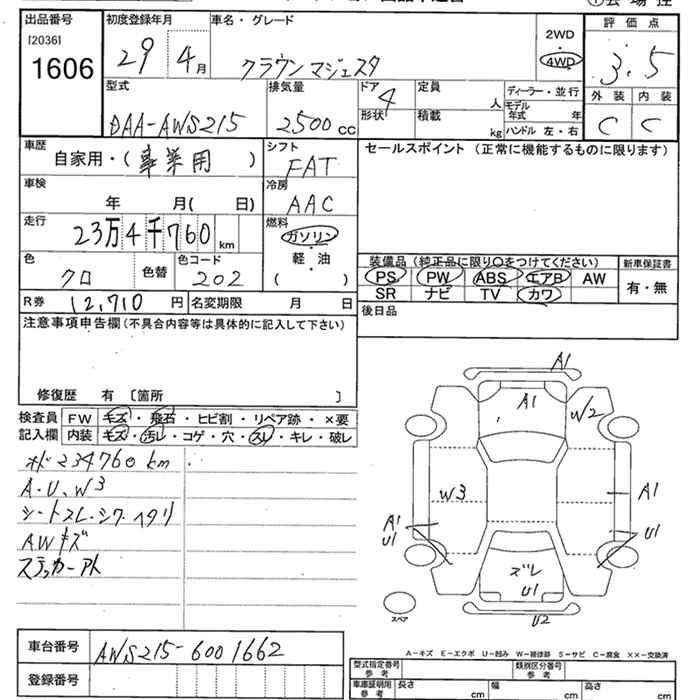 出品番号
[2036]
1606
初度登録年月
29 4月
車名・グレード
クラウンマジェスタ
2WD
・
4WD
評価点
3.5
型式
DAA-AWS215
排気量
2500 CC
ドア
4
形状
定員
人
積載
kg
ディーラー・並行
モデル
年式 年
ハンドル 左・右
外装 内装
C C
車歴
自家用・(事業用)
シフト
FAT
セールスポイント (正常に機能するものに限ります)
車検
年 月( 日)
冷房
AAC
走行
23万4千760 km
燃料
ガソリン
・
軽・油
・
( )
色
クロ
色替
色コード
202
装備品 (純正品に限り○をつけてください)
PS PW ABS エアB AW
SR ナビ TV カワ
新車保証書
有・無
R券 12,710 円
名変期限 月 日
後日品
注意事項申告欄 (不具合内容等は具体的に記入して下さい)
修復歴 有 〔箇所 〕
検査員
記入欄
FW キズ・飛石・ヒビ割・リペア跡・×要
内装 キズ・汚レ・コゲ・穴・スレ・キレ・破レ
オド234760km
A.U.W3
シートスレ・シワ・ヘタリ
AWキズ
ステッカーアト
A1
A1
W2
W3
A1
A1
U1
U1
ズレ
U1
U2
スペア
車台番号
AWS215-6001662
登録番号
A-キズ E-エクボ U-凹み W-補修跡 S-サビ C-腐食 ××-交換済
型式指定番号
参考
類別区分番号
参考
車庫証明用
参考
長さ cm
幅 cm
高さ cm